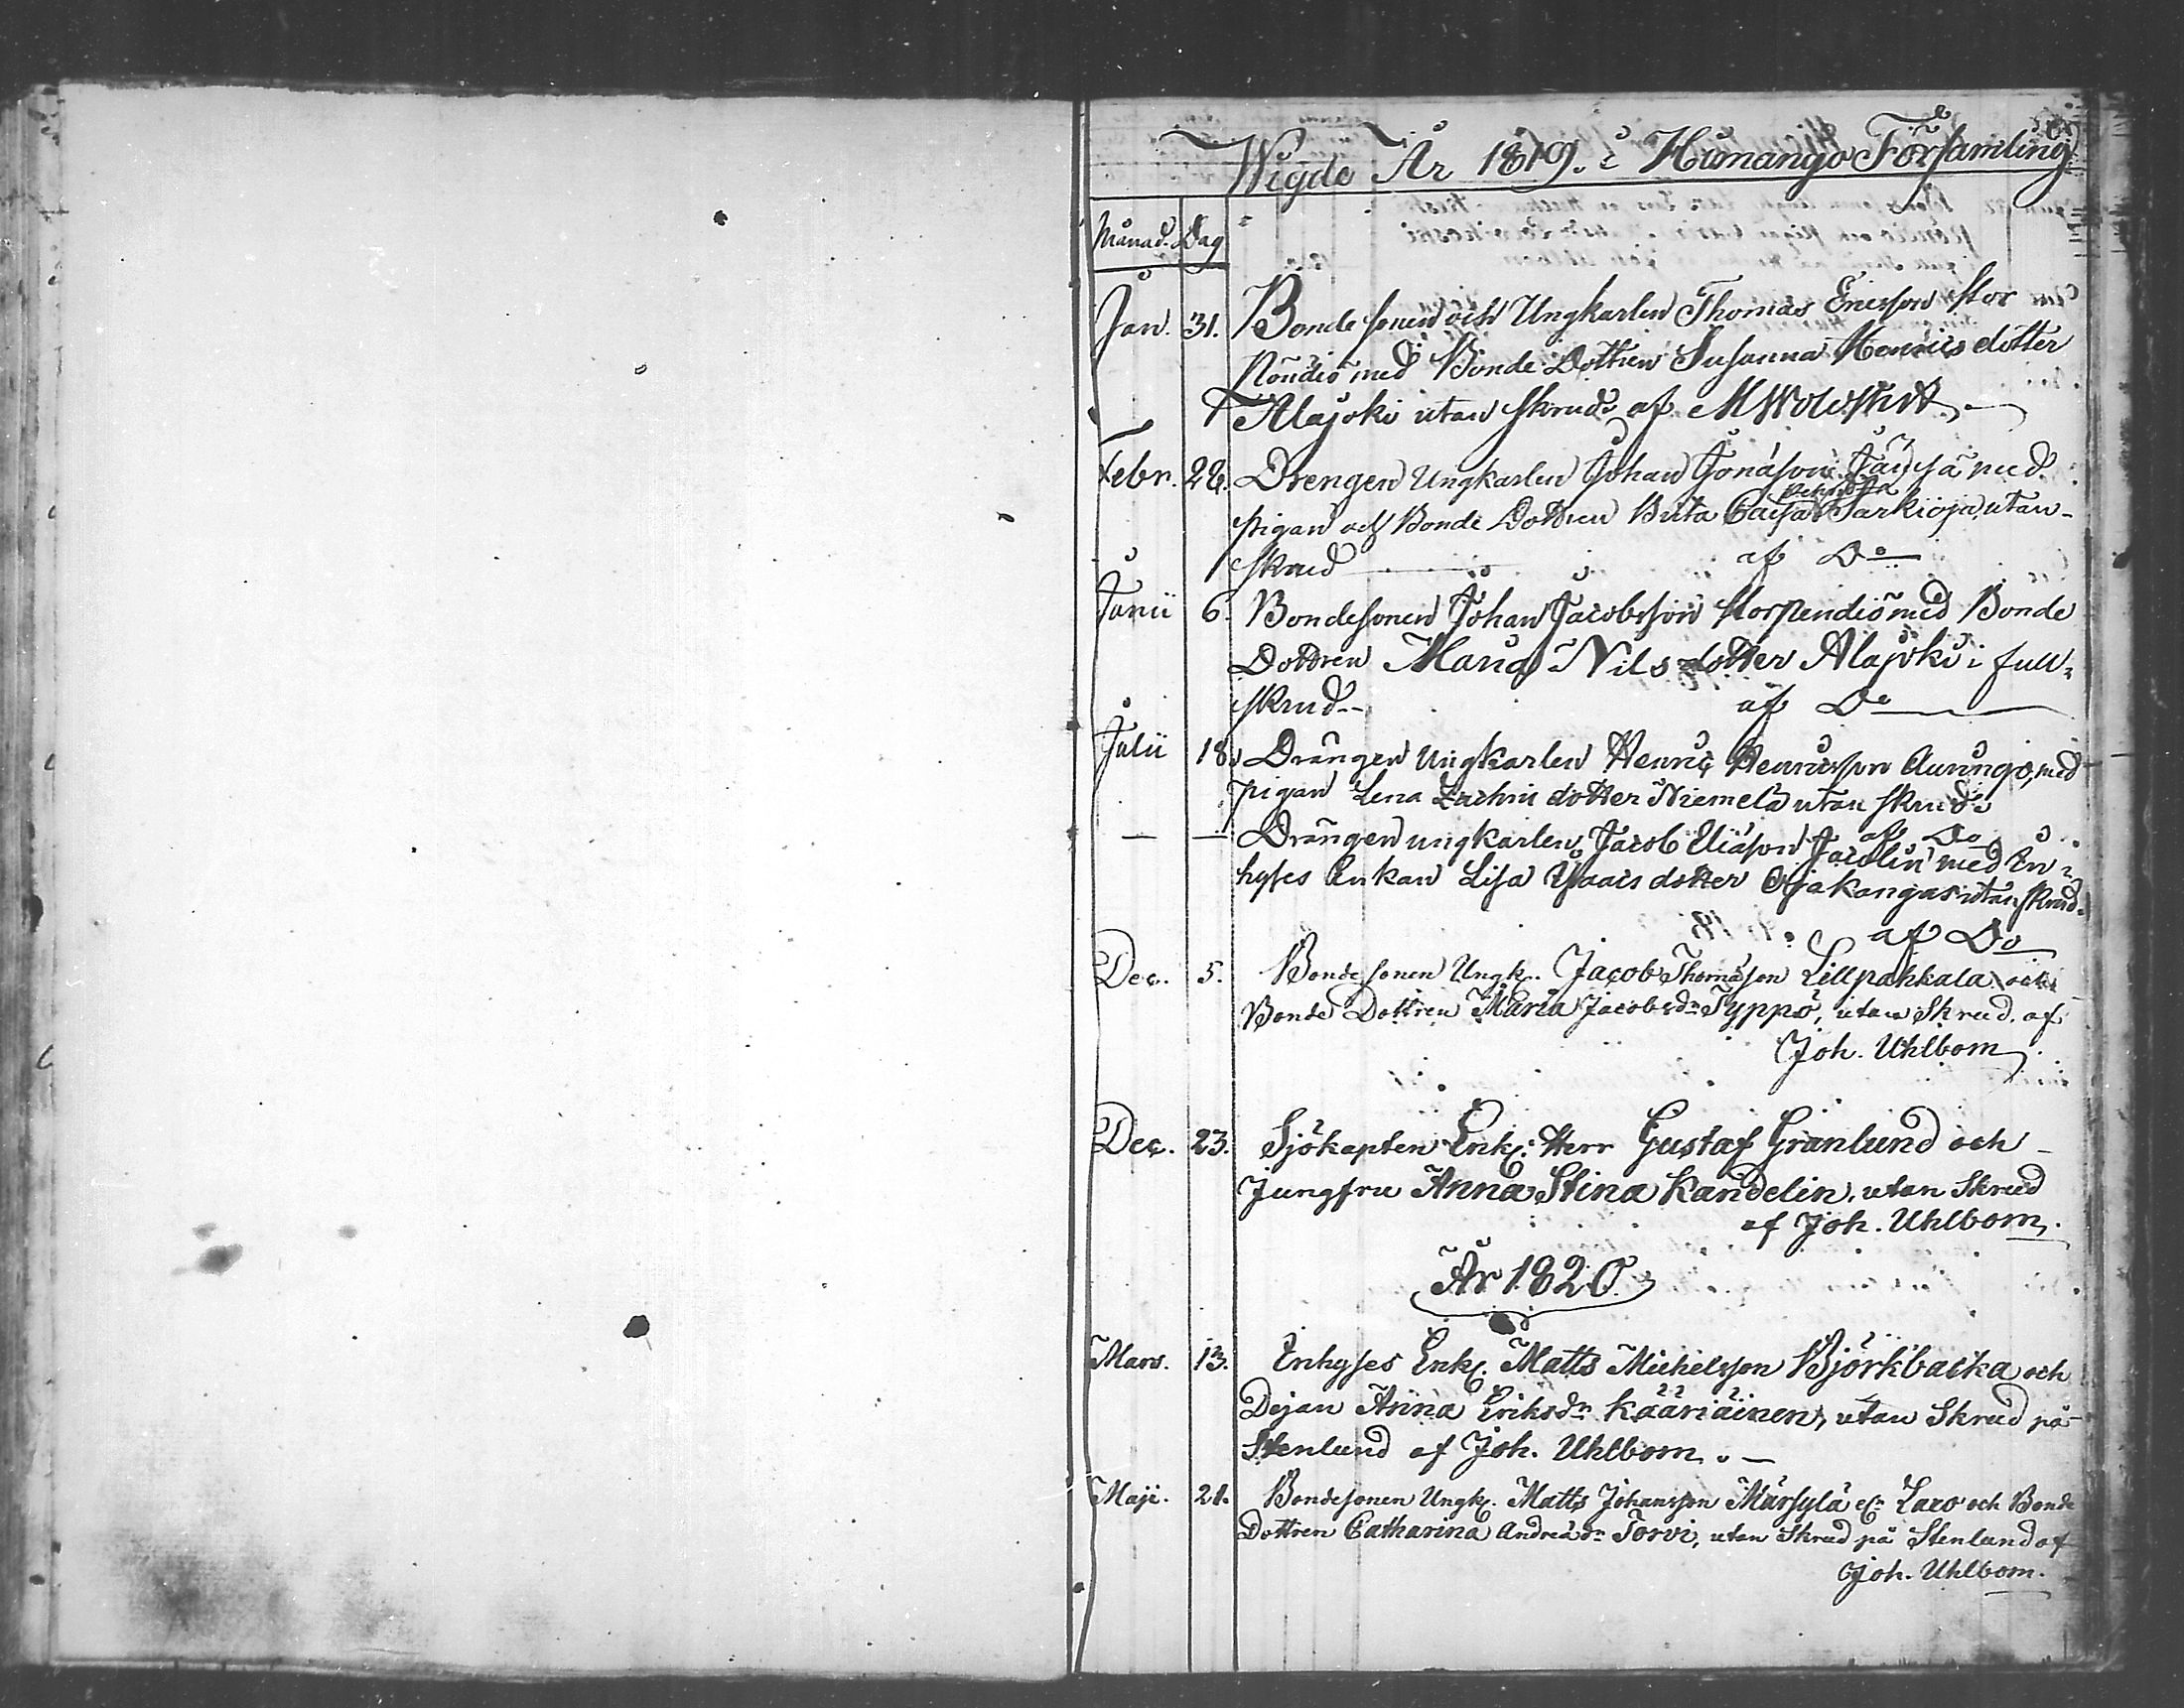 Wigde År 1819. i Himango Församling
Månad. Dag
Jan. 31. Bondesonen och Ungkarlen Thomas Ericsson Stor
Pöndiö med Bonde Dottren Susanna Henricsdotter
Alajoki utan skrud. af M Wolofsin
Febr. 28. Drengen Ungkarlen Johan Jonasson med
pigan och Bonde Dottren Brita Caisa Särkioja, utan
skrud af Do
Junii 6. Bondesonen Johan Jacobsson Storpendiö med Bonde
Dottren Maria Nilsdotter Alajoki i full
skrud af Do
Julii 18. Drängen Ungkarlen Henric Henricsson Auringo, med
pigan Lena Zachri dotter Niemelä utan skrud.
af Do
— — Drängen ungkarlen Jacob Eliasson Jacolin med In
hyses Enkan Lisa Isaacs dotter Ojakangas utan skrud.
af Do
Dec. 5. Bondesonen Ungk. Jacob Thomasson Lillpahkala och
Bonde Dottren Maria Jacobsdr Typpö, utan Skrud. af
Joh. Uhlbom
Dec. 23. Sjökapten Enkl. Herr Gustaf Granlund och
Jungfru Anna Stina Kandelin, utan Skrud
af Joh. Uhlbom.
År 1820.
Mars. 13. Inhyses Enkl. Matts Michelsson Björkbacka och
Dejan Anna Eriksdr Kääriäinen, utan Skrud på
Stenlund af Joh. Uhlbom.
Maji. 21. Bondesonen Ungk. Matts Johansson Märsylä Laxo och Bonde
Dottren Catharina Andreädr Torvi, utan Skrud på Stenlund af
Joh. Uhlbom.